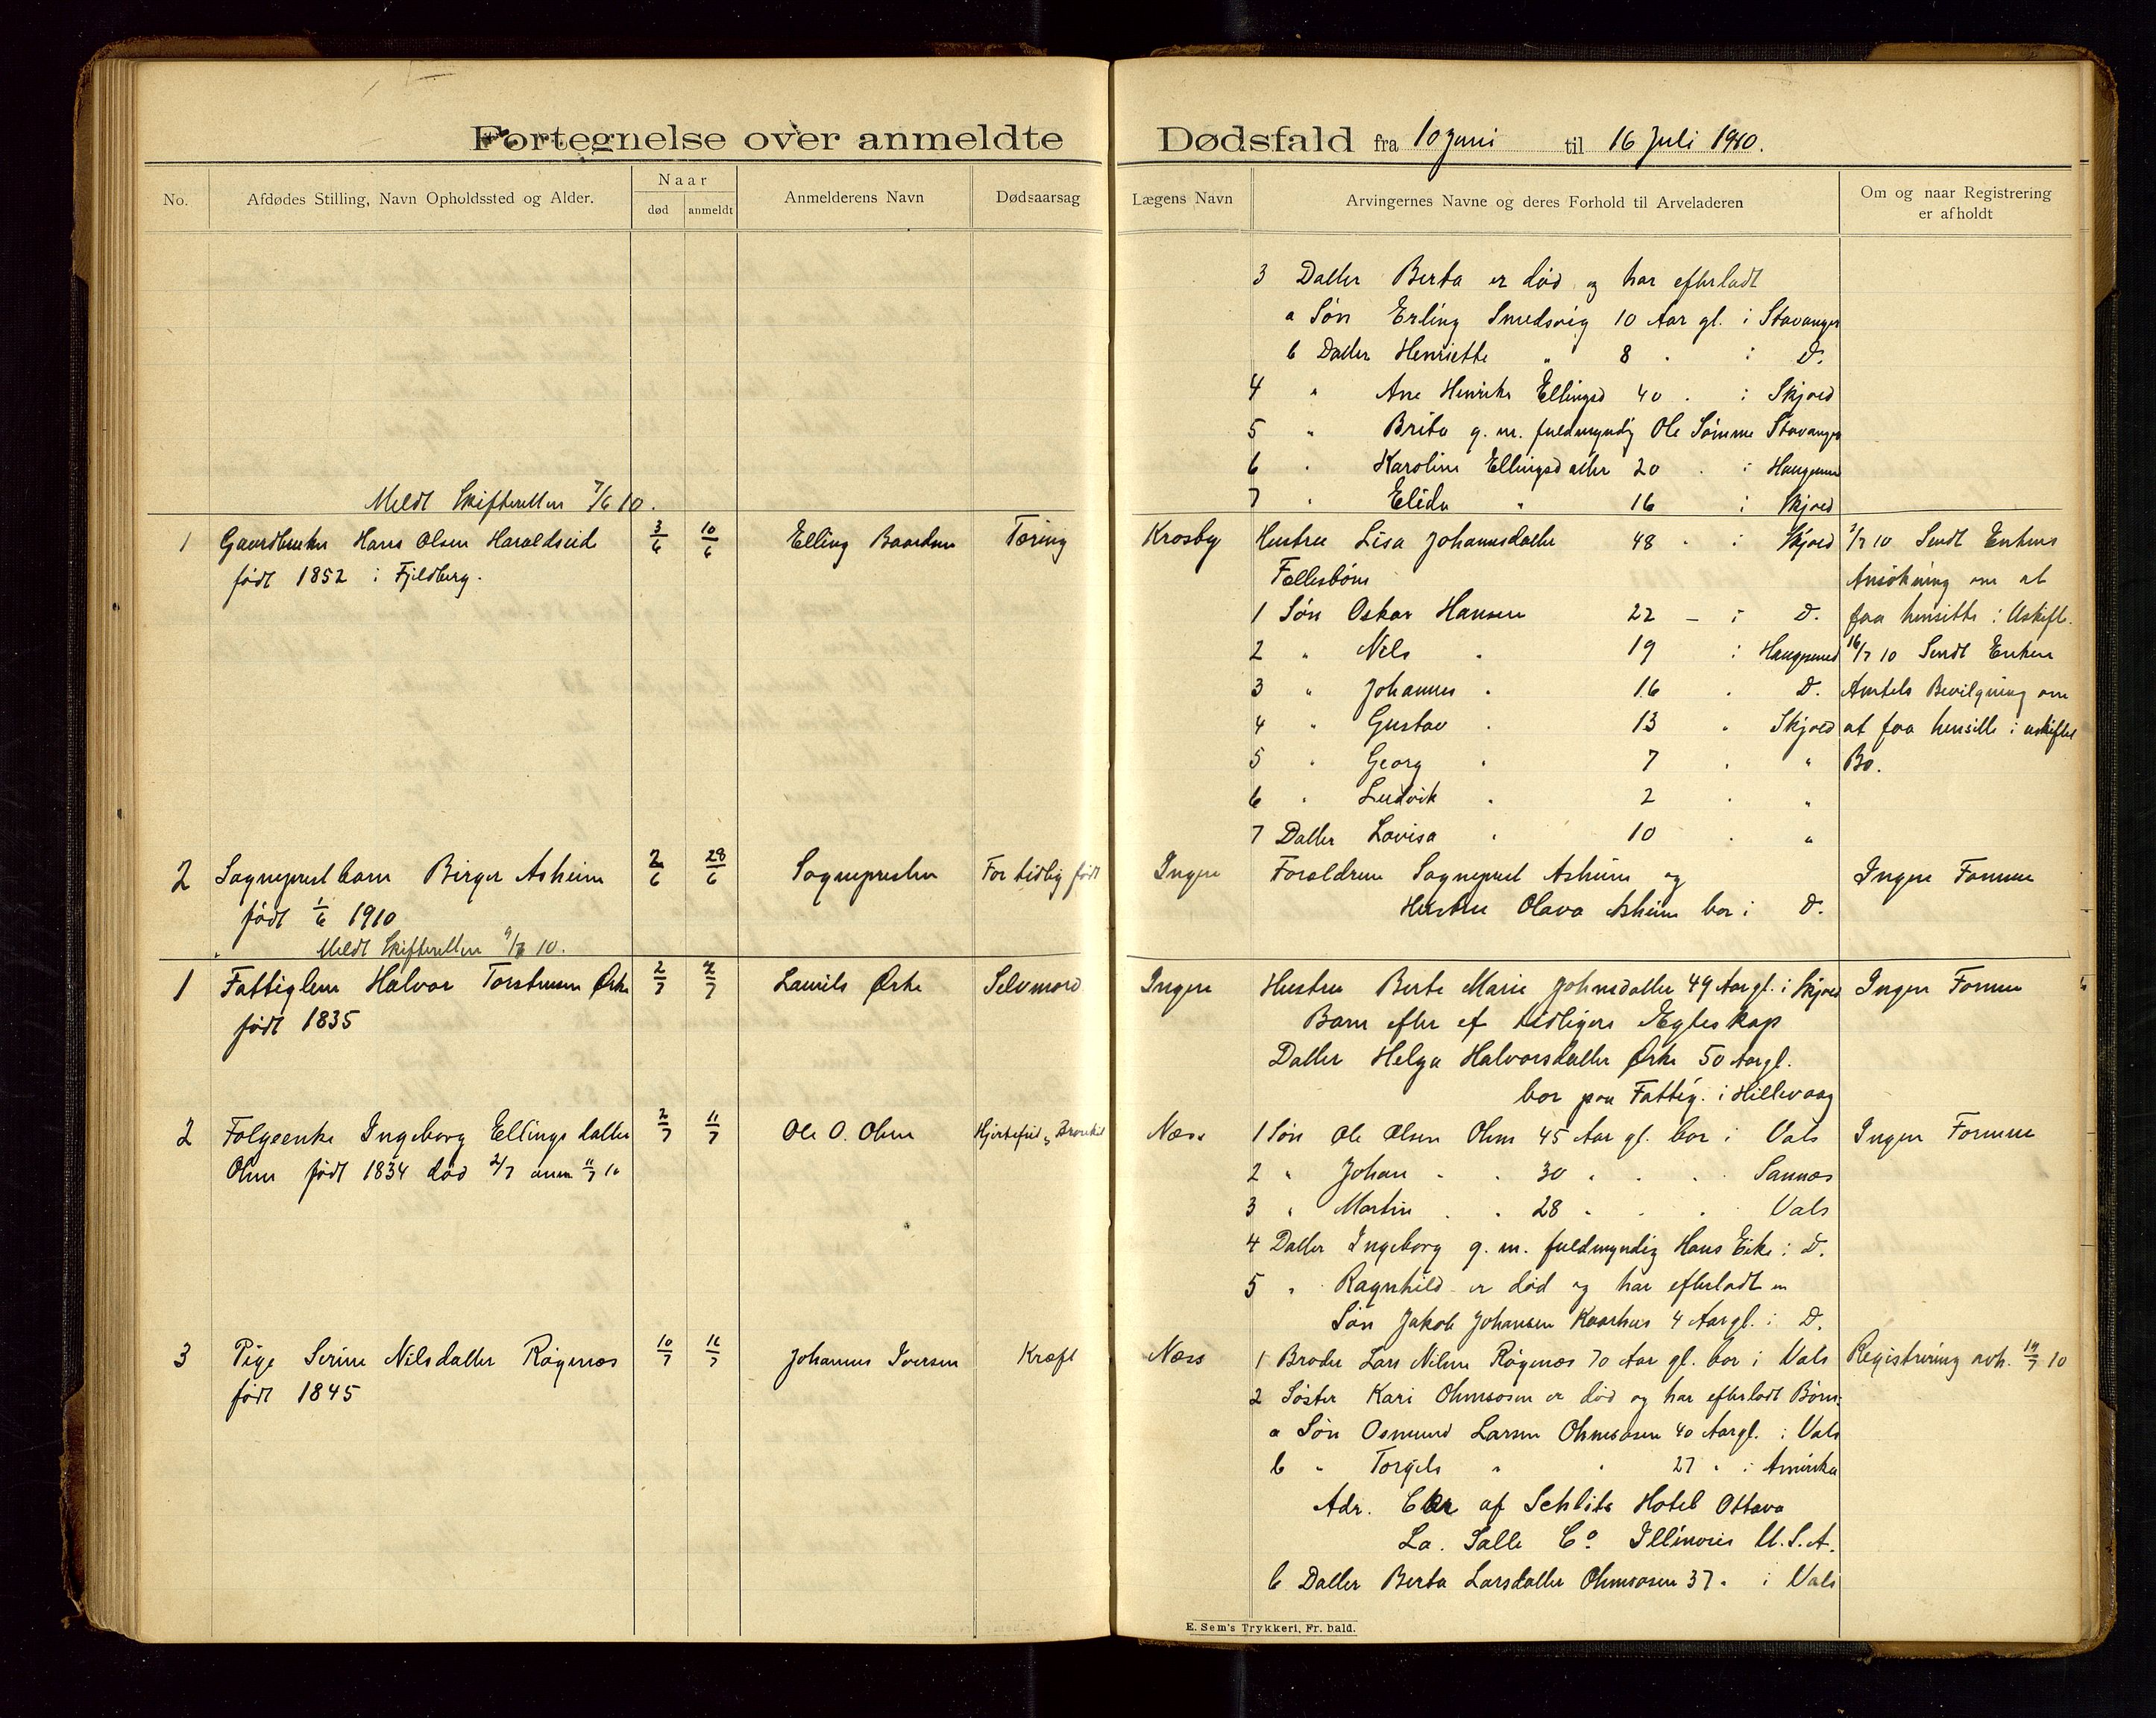 Fortegnelse over anmeldte Dødsfald fra 10 Juni til 16 Juli 1910.
No.
Afdødes Stilling, Navn Opholdssted og Alder.
Naar
død
anmeldt
Anmelderens Navn
Dødsaarsag
Lægens Navn
Arvingernes Navne og deres Forhold til Arveladeren
Om og naar Registrering
er afholdt
3 Datter Berta er død og har efterladt
a Søn Erling Smedsvig 10 Aar gl. i Stavanger
b Datter Henriette " 8 " i D.
4 " Ane Henrikke Ellingsd 40 . i Skjold
5 " Brita g. m. fuldmyndig Ole Sømme Stavanger
6 " Karoline Ellingsdatter 20 . i Haugesund
7 " Elida " 16 i Skjold
Meldt Skifteretten 7/6 10.
1 Gaardbruker Hans Olsen Haraldseid 3/6 10/6 Elling Baardsen Tæring Krosby Hustru Lisa Johannsdatter 48 " i Skjold 2/7 10 Sendt Enkens
født 1852 i Fjeldberg. Fællesbørn Ansøkning om at
1 Søn Oskar Hansen 22 - i D. faa hensitte i Uskift.
2 " Nils " 19 i Haugesund 16/7 10 Sendt Enken
3 " Johannes " 16 . D. Amtets Bevilgning om
4 " Gustav " 13 " Skjold at faa hensitte i uskiftet
5 " Georg " 7 " " Bo.
6 " Ludvik " 2 " "
7 Datter Lovisa " 10 " "
2 Sogneprest barn Birger Asheim 2/6 28/6 Sognepresten For tidlig født Ingen Forældrene Sogneprest Asheim og Ingen Formue
født 1/6 1910 Hustru Olava Asheim bor i D.
Meldt Skifteretten 9/7 10.
1 Fattiglem Halvor Torstensen Ørke 2/7 7/7 Laurits Ørke Selvmord Ingen Hustru Berte Marie Johnsdatter 49 Aar gl. i Skjold Ingen Formue
født 1835 Barn efter et tidligere Egteskap
Datter Helga Halvorsdatter Ørke 50 Aar gl.
bor paa Fattig. i Hillevaag
2 Folgeenke Ingeborg Ellingsdatter 2/7 11/7 Ole O. Ohm Hjertefeil Bronkit Næss 1 Søn Ole Olsen Ohm 45 Aar gl. bor i Vats Ingen Formue
Ohm født 1834 død 2/7 anm 11/7 10 2 " Johan " " 30 " " " Sannæs
3 " Martin " " 28 " " " Vats
4 Datter Ingeborg g. m. fuldmyndig Hans Eike i D.
5 " Ragnhild er død og har efterladt en
Søn Jakob Johansen Kaarhus 4 Aar gl. i D.
3 Pige Serine Nilsdatter Røgenæs 10/7 16/7 Johannes Iversen Kræft Næss 1 Broder Lars Nilsen Røgenæs 70 Aar gl. bor i Vats Registrering avh. 19/7 10
født 1845 2 Søster Kari Ohmsosen er død og har efterladt Børn:
a Søn Osmund Larsen Ohmsosen 40 Aar gl. i Vats
b " Torgels " " 27 " i Amerika
Adr. af Schlits Hotel Ottava
La. Salle Co. Illinoies U.S.A.
b Datter Berta Larsdatter Ohmsosen 37. i Vats
E. Sem's Trykkeri, Fr. hald.